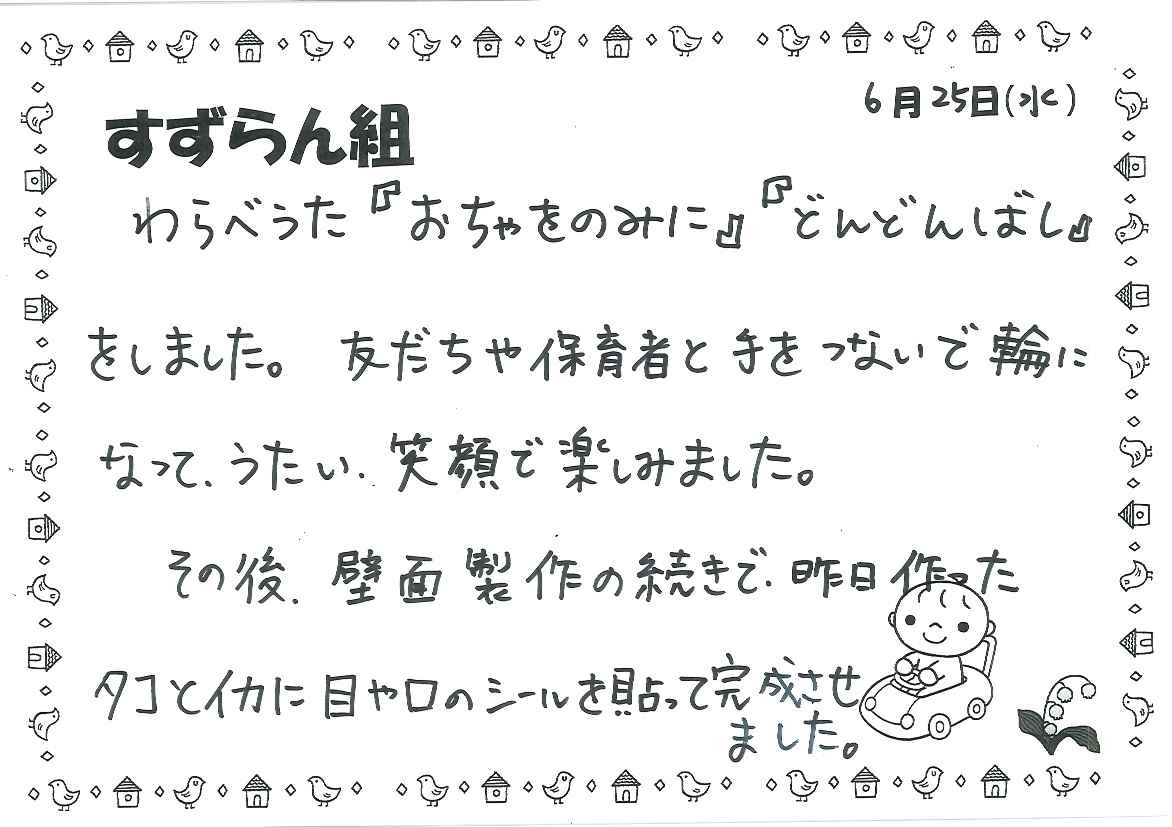 6月25日(水)
すずらん組
わらべうた『おちゃをのみに』『どんどんばし』
をしました。 友だちや保育者と手をつないで輪に
なって、うたい、笑顔で楽しみました。
その後、壁面製作の続きで、昨日作った
タコとイカに目や口のシールを貼って完成させ
ました。